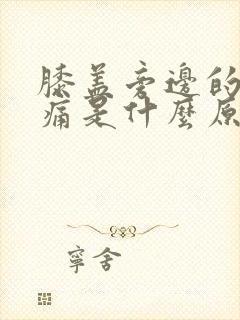 膝盖旁边的
痛是什麼原
寧舍